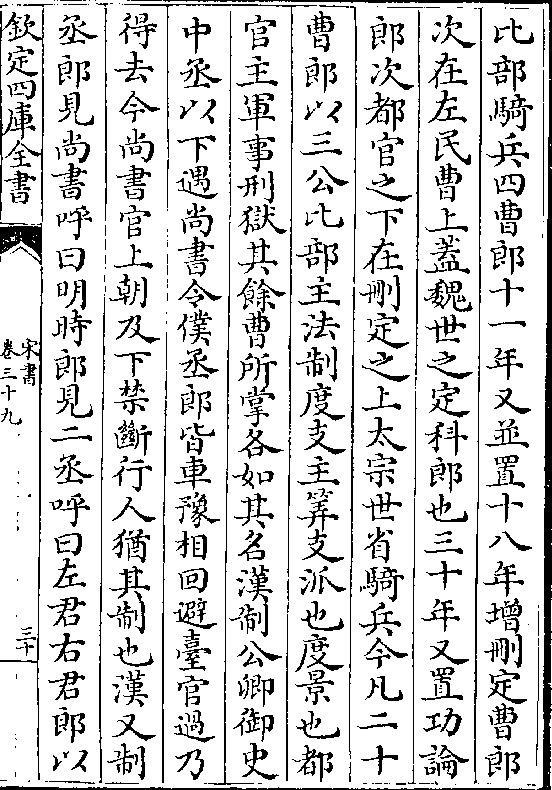 比部騎兵四曹郎十一年又並置十八年增刪定曹郎
次在左民曹上蓋魏世之定科郎也三十年又置功論
郎次都官之下在刪定之上太宗世省騎兵今凡二十
曹郎以三公比部主法制度支主筭支派也度景也都
官主軍事刑獄其餘曹所掌各如其名漢制公卿御史
中丞以下遇尚書令僕丞郎皆車豫相回避臺官過乃
得去今尚書官上朝及下禁斷行人猶其制也漢又制
丞郎見尚書呼曰明時郎見二丞呼曰左君右君郎以
欽定四庫全書
宋書
卷三十九
三十